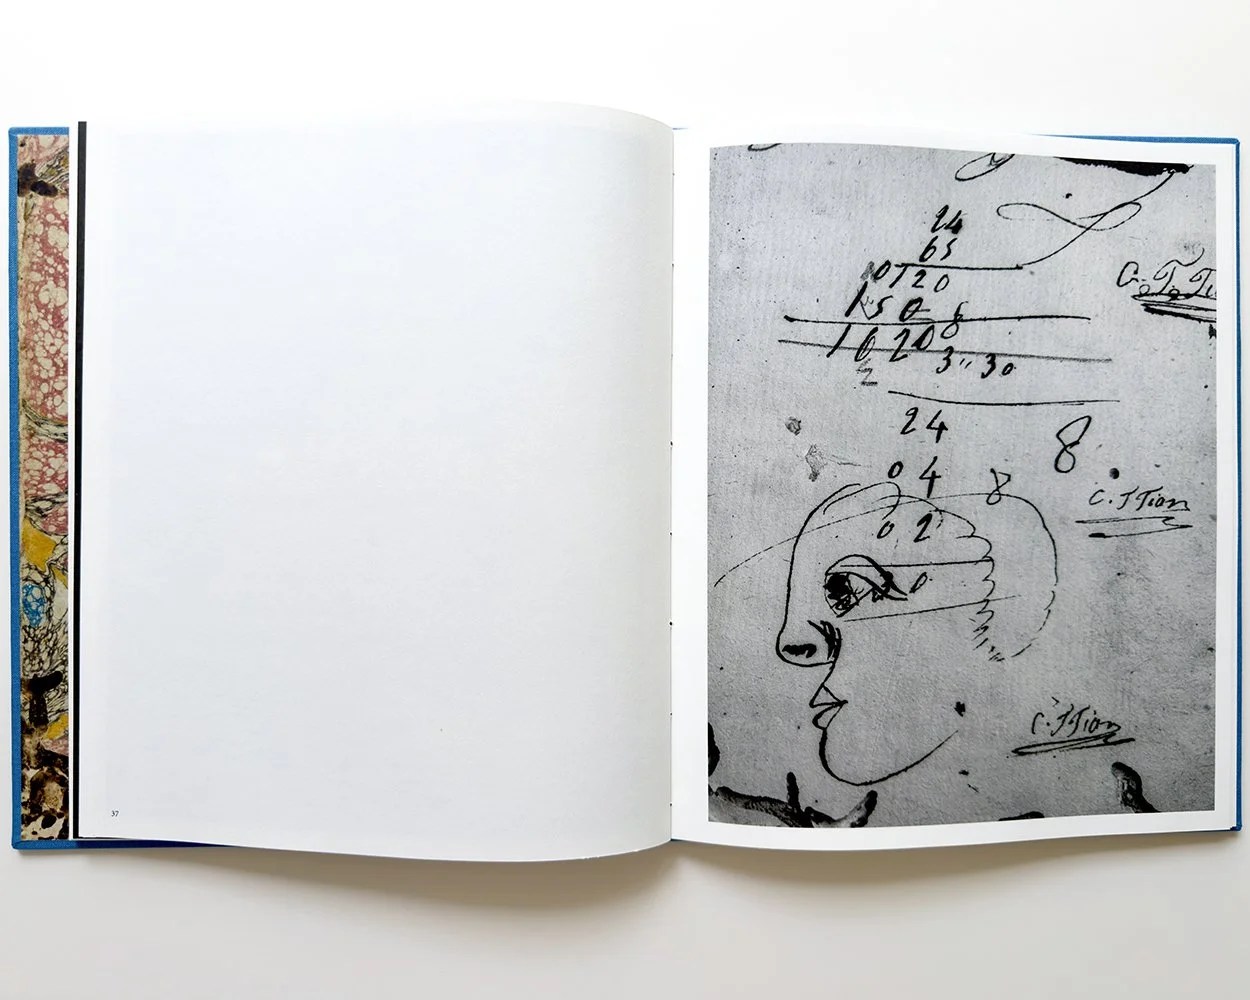 37
24
65
0120
1508
16208
3,, 30
24
8
04
8
02
0
C. T. Ti
C. T Tion
C. T Tion